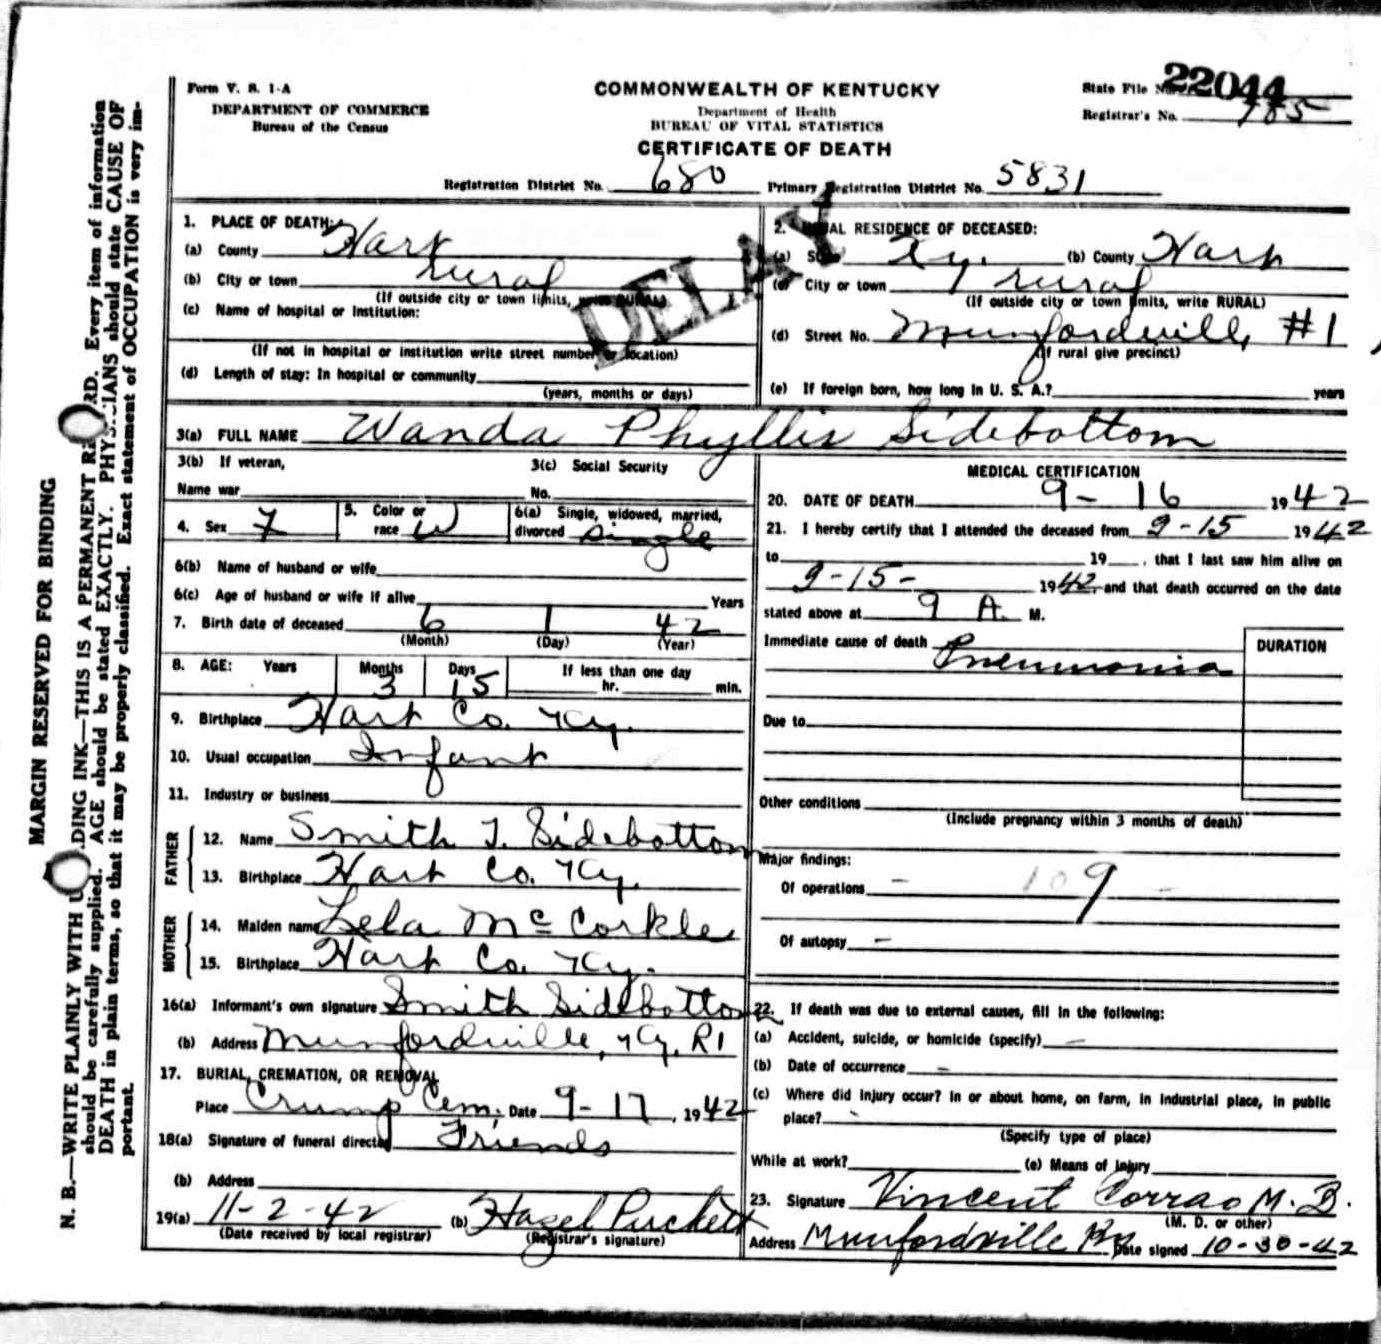 Form V. S. 1-A
DEPARTMENT OF COMMERCE
Bureau of the Census
COMMONWEALTH OF KENTUCKY
Department of Health
BUREAU OF VITAL STATISTICS
CERTIFICATE OF DEATH
State File No. 22044
Registrar's No. 785
Registration District No. 680 Primary Registration District No. 5831
DELAY
1. PLACE OF DEATH:
(a) County Hart
(b) City or town rural
(If outside city or town limits, write RURAL)
(c) Name of hospital or institution:
(If not in hospital or institution write street number or location)
(d) Length of stay: In hospital or community
(years, months or days)
2. USUAL RESIDENCE OF DECEASED:
(a) State Ky. (b) County Hart
(c) City or town rural
(If outside city or town limits, write RURAL)
(d) Street No. Munfordville #1
(If rural give precinct)
(e) If foreign born, how long in U. S. A.? years
3(a) FULL NAME Wanda Phyllis Sidebottom
3(b) If veteran,
Name war
3(c) Social Security
No.
4. Sex F
5. Color or
race W
6(a) Single, widowed, married,
divorced single
6(b) Name of husband or wife
6(c) Age of husband or wife if alive Years
7. Birth date of deceased 6 1 42
(Month) (Day) (Year)
8. AGE: Years Months Days If less than one day
3 15 hr. min.
9. Birthplace Hart Co. Ky.
10. Usual occupation Infant
11. Industry or business
FATHER
12. Name Smith T. Sidebottom
13. Birthplace Hart Co. Ky.
MOTHER
14. Maiden name Lela McCorkle
15. Birthplace Hart Co. Ky.
16(a) Informant's own signature Smith Sidebottom
(b) Address Munfordville, Ky. R1
17. BURIAL, CREMATION, OR REMOVAL
Place Crump Cem. Date 9-17, 1942
18(a) Signature of funeral director Friends
(b) Address
19(a) 11-2-42 (b) Hazel Puckett
(Date received by local registrar) (Registrar's signature)
MEDICAL CERTIFICATION
20. DATE OF DEATH 9-16 1942
21. I hereby certify that I attended the deceased from 9-15 1942
to 19 , that I last saw him alive on
9-15- 1942 and that death occurred on the date
stated above at 9 A. M.
Immediate cause of death Pneumonia
DURATION
Due to
Other conditions
(Include pregnancy within 3 months of death)
Major findings:
Of operations - 109 -
Of autopsy -
22. If death was due to external causes, fill in the following:
(a) Accident, suicide, or homicide (specify) -
(b) Date of occurrence -
(c) Where did injury occur? In or about home, on farm, in industrial place, in public
place? -
(Specify type of place)
While at work? (e) Means of Injury
23. Signature Vincent Corrao M. D.
(M. D. or other)
Address Munfordville Ky Date signed 10-30-42
MARGIN RESERVED FOR BINDING
N. B.—WRITE PLAINLY WITH UNFADING INK—THIS IS A PERMANENT RECORD. Every item of information
should be carefully supplied. AGE should be stated EXACTLY. PHYSICIANS should state CAUSE OF
DEATH in plain terms, so that it may be properly classified. Exact statement of OCCUPATION is very im-
portant.